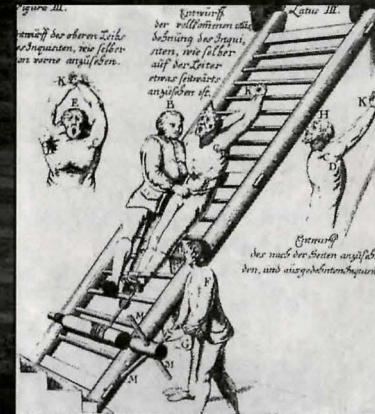 Figura III.
Entwurff des oberen Leibs
des Inquisiten, wie selber
von vorne anzusehen.
Entwurff
der vollkommenen Aus-
dehnung des Inqui-
siten, wie selber
auf der Leiter
etwas seitwärts
anzusehen ist.
Latus III.
K
E
B
K
C
H
K
C
D
Entwurff
des nach der Seiten anzuseh
den, und ausgedehnten Inquisi
F
M
G
M
M